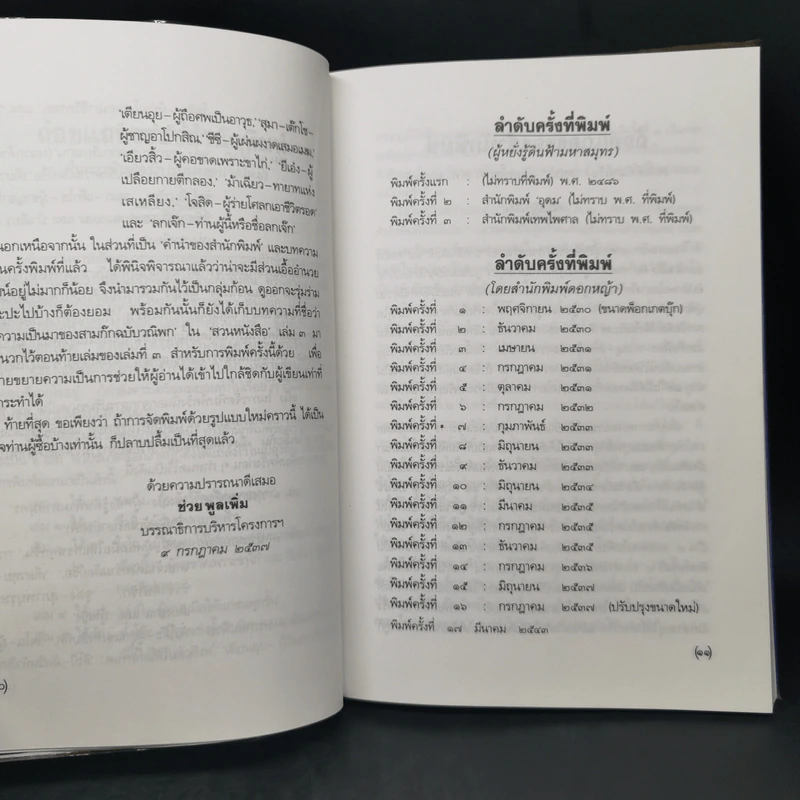 'เตียนอุย–ผู้ถือศพเป็นอาวุธ,' 'สุมา–เต๊กโช–
ผู้ชาญอาโปกสิณ,' 'ซีซี–ผู้เผ่นผงาดเสมอเมฆ,'
'เอียวสิ้ว–ผู้คอขาดเพราะขาไก่,' 'ยีเอ๋ง–ผู้
เปลือยกายตีกลอง,' 'ม้าเฉียว–ทายาทแห่ง
เสเหลียง,' 'โจสิด–ผู้ร่ายโศลกเอาชีวิตรอด'
และ 'ลกเจ๊ก–ท่านผู้นี้หรือชื่อลกเจ๊ก'
นอกเหนือจากนั้น ในส่วนที่เป็น 'คำนำของสำนักพิมพ์' และบทความ
นครั้งพิมพ์ที่แล้ว ได้พินิจพิจารณาแล้วว่าน่าจะมีส่วนเอื้ออำนวย
น์อยู่ไม่มากก็น้อย จึงนำมารวมกันไว้เป็นกลุ่มก้อน ดูออกจะรุ่มร่าม
ะปะไปบ้างก็ต้องยอม พร้อมกันนั้นก็ยังได้เก็บบทความที่ชื่อว่า
ความเป็นมาของสามก๊กฉบับวณิพก' ใน 'สวนหนังสือ' เล่ม ๓ มา
นวกไว้ตอนท้ายเล่มของเล่มที่ ๓ สำหรับการพิมพ์ครั้งนี้ด้วย เพื่อ
ายขยายความเป็นการช่วยให้ผู้อ่านได้เข้าไปใกล้ชิดกับผู้เขียนเท่าที่
ะทำได้
ท้ายที่สุด ขอเพียงว่า ถ้าการจัดพิมพ์ด้วยรูปแบบใหม่คราวนี้ ได้เป็น
จท่านผู้ซื้อบ้างเท่านั้น ก็ปลาบปลื้มเป็นที่สุดแล้ว
ด้วยความปรารถนาดีเสมอ
ช่วย พูลเพิ่ม
บรรณาธิการบริหารโครงการฯ
๙ กรกฎาคม ๒๕๓๗
ลำดับครั้งที่พิมพ์
(ผู้หยั่งรู้ดินฟ้ามหาสมุทร)
พิมพ์ครั้งแรก : (ไม่ทราบที่พิมพ์) พ.ศ. ๒๔๘๖
พิมพ์ครั้งที่ ๒ : สำนักพิมพ์ 'อุดม' (ไม่ทราบ พ.ศ. ที่พิมพ์)
พิมพ์ครั้งที่ ๓ : สำนักพิมพ์เทพไพศาล (ไม่ทราบ พ.ศ. ที่พิมพ์)
ลำดับครั้งที่พิมพ์
(โดยสำนักพิมพ์ดอกหญ้า)
พิมพ์ครั้งที่ ๑ : พฤศจิกายน ๒๕๓๐ (ขนาดพ็อกเกตบุ๊ก)
พิมพ์ครั้งที่ ๒ : ธันวาคม ๒๕๓๐
พิมพ์ครั้งที่ ๓ : เมษายน ๒๕๓๑
พิมพ์ครั้งที่ ๔ : กรกฎาคม ๒๕๓๑
พิมพ์ครั้งที่ ๕ : ตุลาคม ๒๕๓๑
พิมพ์ครั้งที่ ๖ : กรกฎาคม ๒๕๓๒
พิมพ์ครั้งที่ ๗ : กุมภาพันธ์ ๒๕๓๓
พิมพ์ครั้งที่ ๘ : มิถุนายน ๒๕๓๓
พิมพ์ครั้งที่ ๙ : ธันวาคม ๒๕๓๓
พิมพ์ครั้งที่ ๑๐ : มิถุนายน ๒๕๓๔
พิมพ์ครั้งที่ ๑๑ : มีนาคม ๒๕๓๕
พิมพ์ครั้งที่ ๑๒ : กรกฎาคม ๒๕๓๕
พิมพ์ครั้งที่ ๑๓ : ธันวาคม ๒๕๓๕
พิมพ์ครั้งที่ ๑๔ : กรกฎาคม ๒๕๓๖
พิมพ์ครั้งที่ ๑๕ : มิถุนายน ๒๕๓๗
พิมพ์ครั้งที่ ๑๖ : กรกฎาคม ๒๕๓๗ (ปรับปรุงขนาดใหม่)
พิมพ์ครั้งที่ ๑๗ มีนาคม ๒๕๔๓
(๑๑)